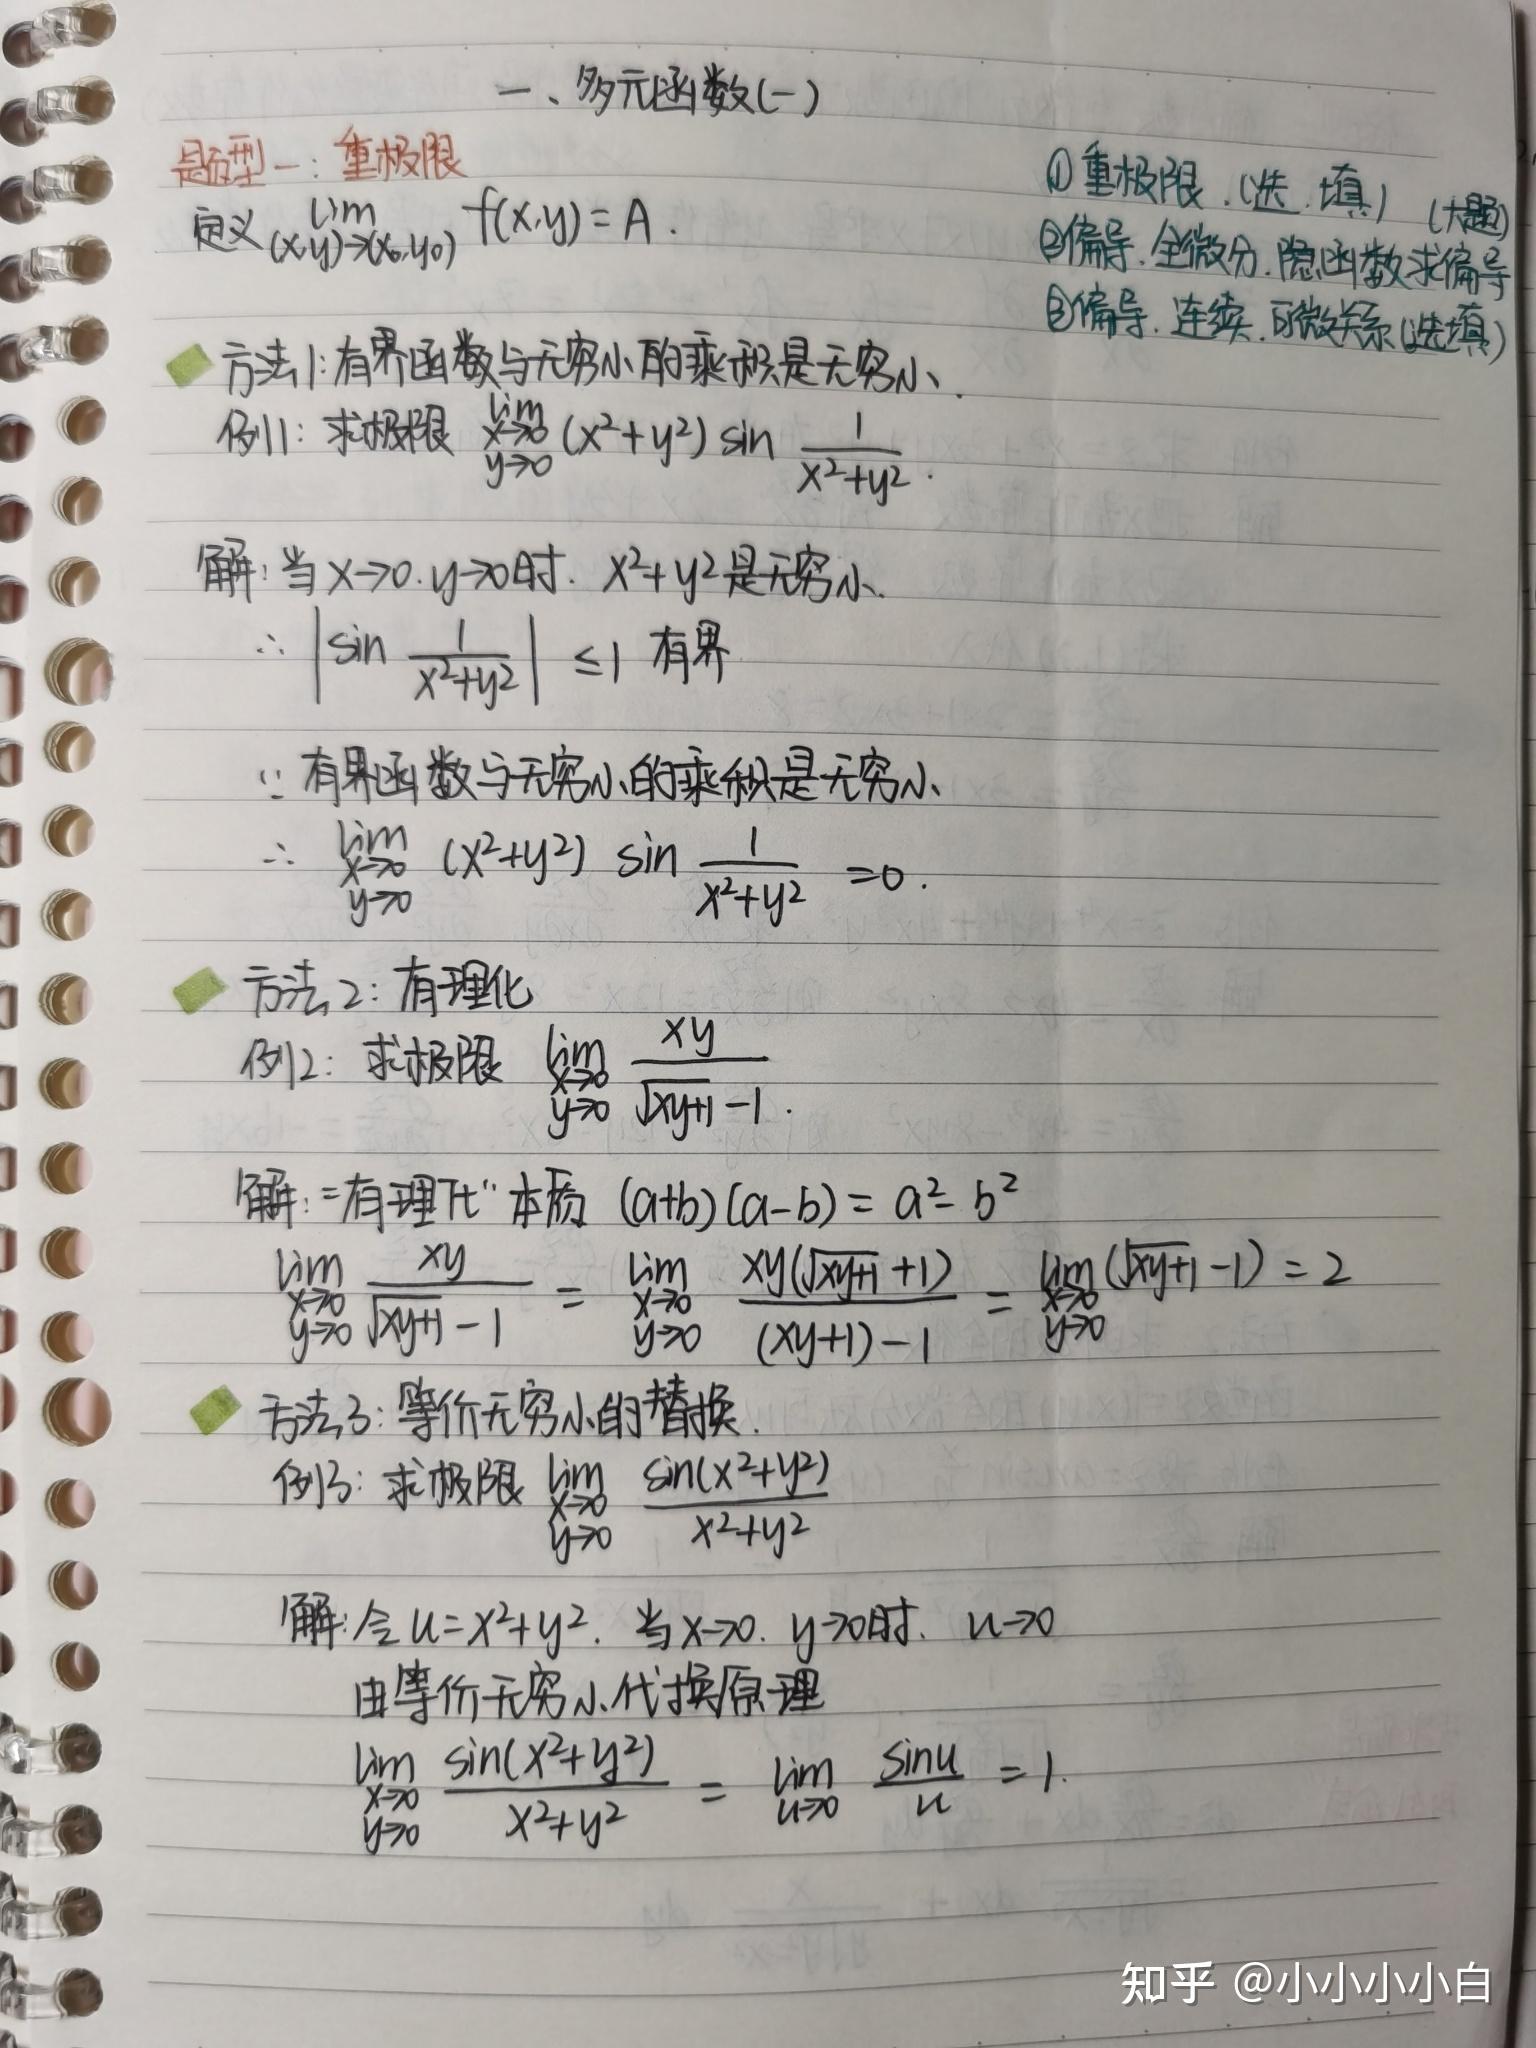 一、多元函数(一)
题型一：重极限
定义 lim (x,y)→(x₀,y₀) f(x,y)=A.
①重极限.(选.填) (大题)
②偏导.全微分.隐函数求偏导
③偏导.连续.可微关系(选填)
方法1:有界函数与无穷小的乘积是无穷小.
例1: 求极限 lim x→0 y→0 (x²+y²) sin 1/(x²+y²).
解:当x→0.y→0时. x²+y²是无穷小.
∴ |sin 1/(x²+y²)| ≤1 有界
∵ 有界函数与无穷小的乘积是无穷小
∴ lim x→0 y→0 (x²+y²) sin 1/(x²+y²) =0.
方法2:有理化
例2: 求极限 lim x→0 y→0 xy/(√(xy+1)-1).
解:"有理化"本质 (a+b)(a-b)=a²-b²
lim x→0 y→0 xy/(√(xy+1)-1) = lim x→0 y→0 xy(√(xy+1)+1)/((xy+1)-1) = lim x→0 y→0 (√(xy+1)-1)=2
方法3:等价无穷小的替换.
例3: 求极限 lim x→0 y→0 sin(x²+y²)/(x²+y²)
解:令u=x²+y². 当x→0. y→0时. u→0
由等价无穷小代换原理
lim x→0 y→0 sin(x²+y²)/(x²+y²) = lim u→0 sinu/u =1.
知乎 @小小小小白